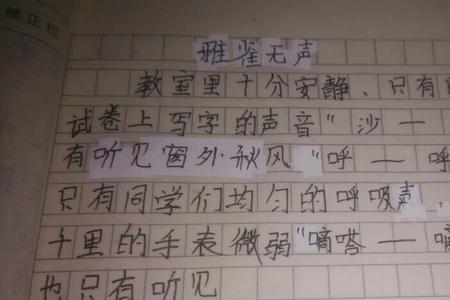 修正栏
雅雀无声
教室里十分安静，只有
试卷上写字的声音“沙—
有听见窗外秋风“呼—呼
只有同学们均匀的呼吸声，
千里的手表微弱“嘀嗒—嘀
也只有听见